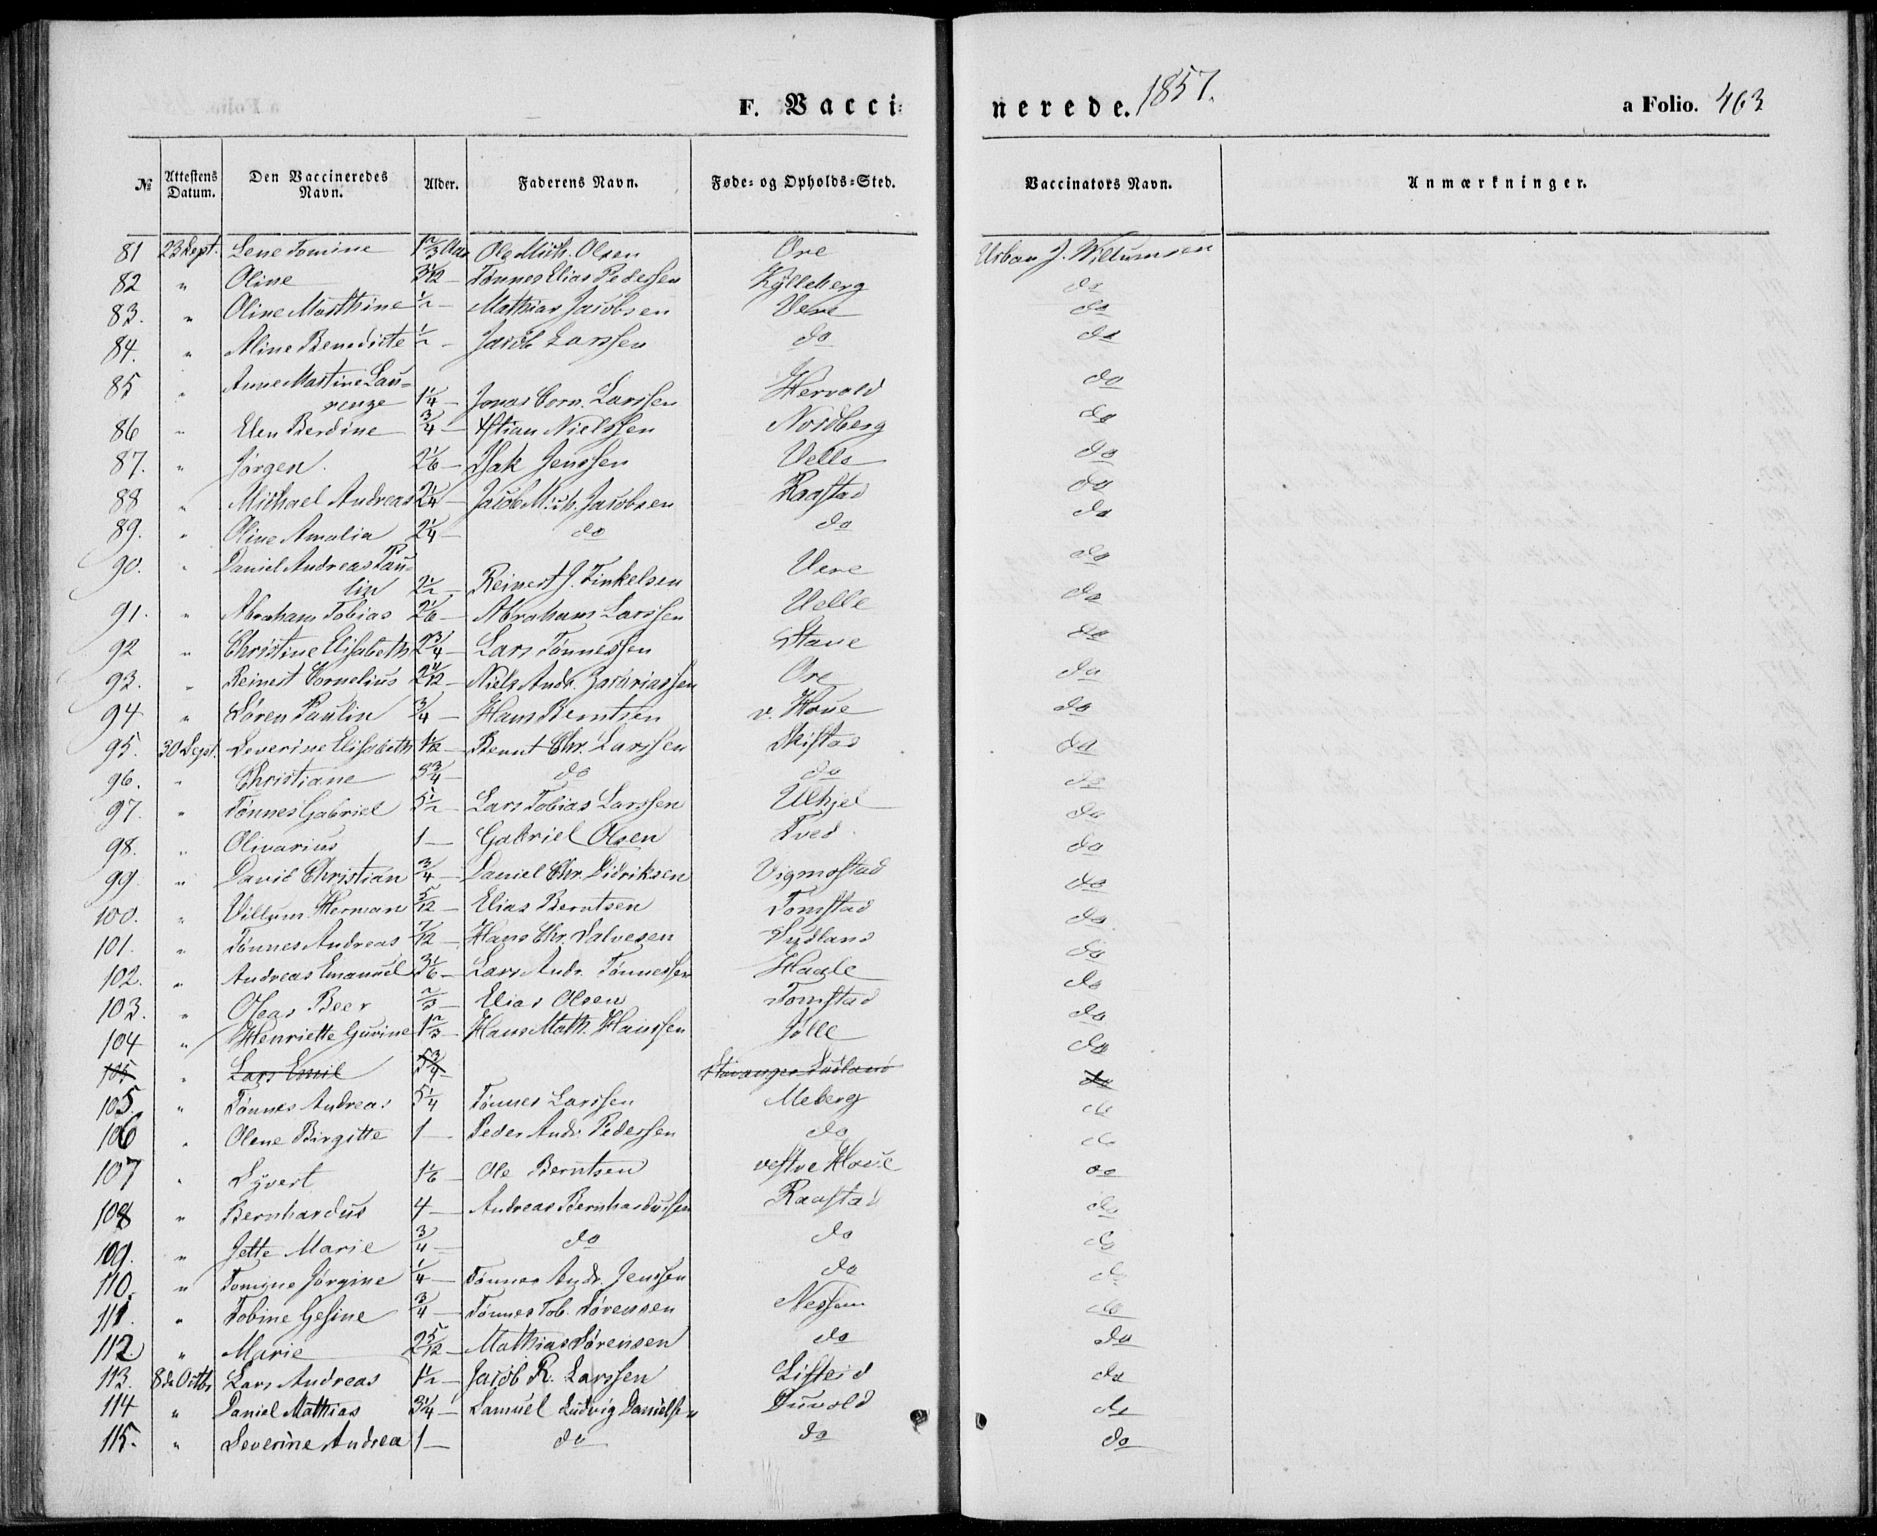 F. Vacci-
nerede. 1857.
a Folio. 463
№ | Attestens Datum. | Den Vaccineredes Navn. | Alder. | Faderens Navn. | Føde- og Opholds-Sted. | Vaccinators Navn. | Anmærkninger.
81 | 23 Sept. | Lene Tomine | 1 2/3 Aar | Ole Mich. Olsen | Ore | Urban J. Willumsen
82 | " | Oline | | Tønnes Elias Pedersen | Kylleberg | do
83. | " | Oline Matthine | 1/2 – | Mathias Jacobsen | Vere | do
84. | " | Aline Benedicte | 1/2 – | Jacob Larssen | do | do
85 | " | Anne Martine Lau=
renze | 1 1/4 – | Jonas Corn. Larssen | Hervold | do
86 | " | Elen Berdine | 3/4 – | Nielssen | Nordberg | do
87. | " | Jørgen. | 2 1/6 – | Isak Jenssen | Velle | do
88 | " | Michael Andreas | 2 1/4 – | Jacob Mich. Jacobsen | Raastad | do
89. | " | Oline Amalia | 2 1/4 – | do | do | do
90. | " | Daniel Andreas Pau=
lin | 2 1/2 – | Reinert J. Tinkelsen | Vere | do
91. | " | Abraham Tobias | 2 1/6 – | Abraham Larssen | Velle | do
92 | " | Christine Elisabeth | 2 3/4 – | Lars Tønnessen | Stave | do
93. | " | Reinert Cornelius | | Niels Andr. Zacariassen | Ore | do
94 | " | Søren Paulin | 3/4 – | Hans Berntsen | v. Hove | do
95. | 30 Sept. | Severine Elisabeth | 1 1/2 – | Bernt Chr. Larssen | Skiftad | do
96. | " | Christiane | 3 3/4 – | do | do | do
97. | " | Tønnes Gabriel | 5 1/2 – | Lars Tobias Larssen | Ulhjel | do
98. | " | Olivarius | 1 – | Gabriel Olsen | Tved. | do
99. | " | David Christian | 3/4 – | Daniel Chr. Didriksen | Vigmostad | do
100. | " | Villum Herman | 5/12 – | Elias Berntsen | Tomstad | do
101. | " | Tønnes Andreas | 7/12 – | Hans Chr. Salvesen | Sudland | do
102. | " | Andreas Emanuel | 3 1/6 – | Lars Andr. Tønnessen | Haale | do
103. | " | Oleas Beer | 2/3 – | Elias Olsen | Tomstad | do
104 | " | Henriette Gurine | 1 2/3 – | Hans Math. Hanssen | Jolle | do
105 | " | Lars Emil | 5 3/4 – | | Stavanger Sudland | do
105 | " | Tønnes Andreas | 5 1/4 | Tønnes Larssen | Meberg | do
106 | " | Olene Birgitte | 1 – | Peder Andr. Pedersen | do | do
107 | " | Syvert | 1 1/6 – | Ole Berntsen | vestre Hove | do
108 | " | Bernhardus | 4 – | Andreas Bernhardussen | Raastad | do
109. | " | Jette Marie | 3/4 – | do | do | do
110. | " | Tomine Jørgine | 1/4 – | Tønnes Andr. Jenssen | do | do
111. | " | Tobine Gesine | 3/4 – | Tønnes Tob. Sørensen | Nessum | do
112. | " | Marie | 2 5/12 – | Mathias Sørensen | do | do
113. | 8de Octbr | Lars Andreas | 1 1/2 – | Jacob R. Larssen | Lifteid | do
114 | " | Daniel Mathias | 3 1/4 – | Samuel Ludvig Danielsen | Duvold | do
115. | " | Severine Andrea | 1 – | do | do | do